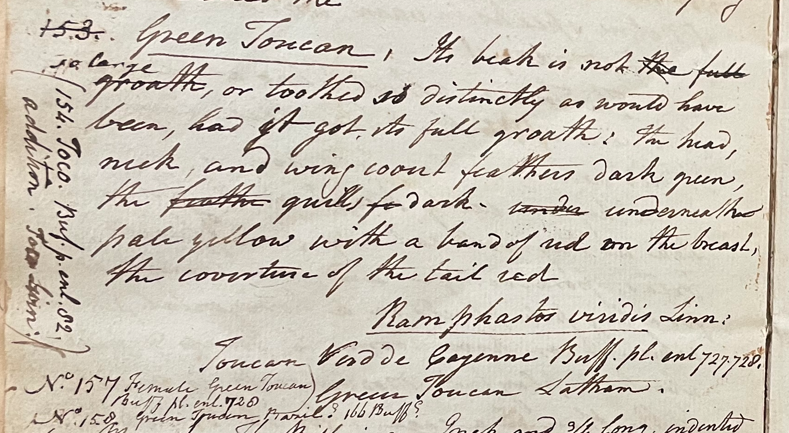 the
153. Green Toucan, Its beak is not the full
so large
groath, or toothed so distinctly as would have
been, had it got its full groath: the head,
neck, and wing covert feathers dark green,
the feathe quills dark. under underneath
pale yellow with a band of red on the breast,
the coverture of the tail red
Ramphastos viridis Linn:
Toucan Verd de Cayenne Buff. pl. enl 727.728.
Green Toucan Latham.
(154. Toco. Buf. p. enl. 82.
addition. Toco Lin.)
No. 157 Female Green Toucan)
Buff pl. enl. 728
No. 158 Green Toucan 166 Buff
Inch and 3/4 long, indented